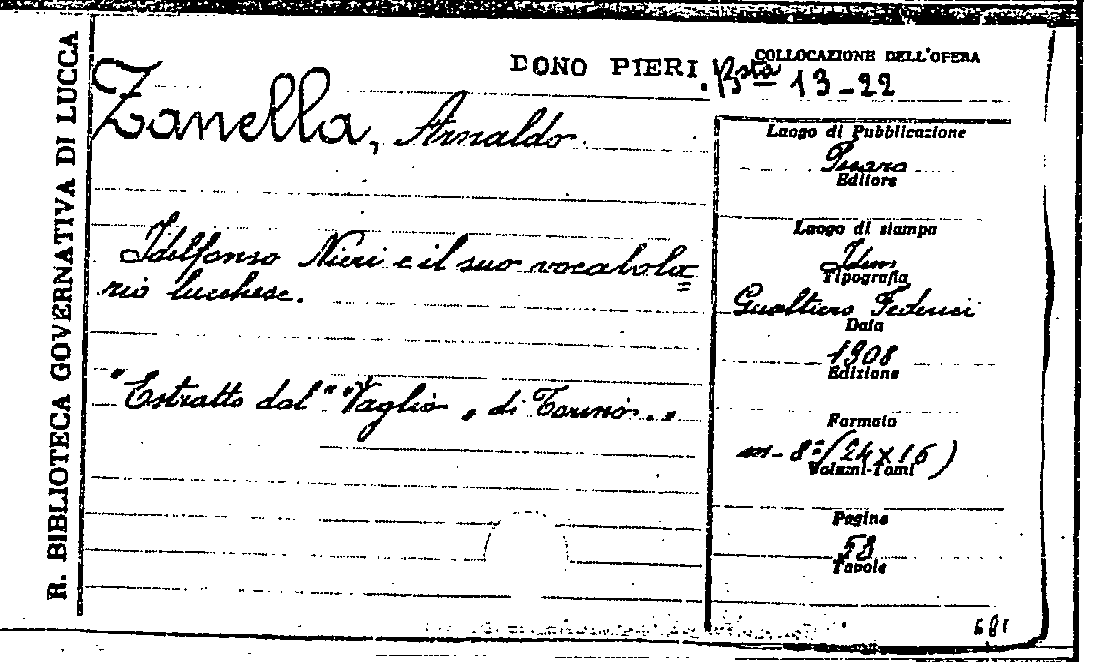 R. BIBLIOTECA GOVERNATIVA DI LUCCA
DONO PIERI
COLLOCAZIONE DELL'OPERA
Bsta 13-22
Zanella, Arnaldo
Idelfonso Nieri e il suo vocabola
rio lucchese.
"Estratto dal "Vaglio" di Torino."
Luogo di Pubblicazione
Pesaro
Editore
Luogo di stampa
Idem
Tipografia
Gualtiero Federici
Data
1908
Edizione
Formato
in-8°(24x16)
Volumi-Tomi
Pagine
58
Tavole